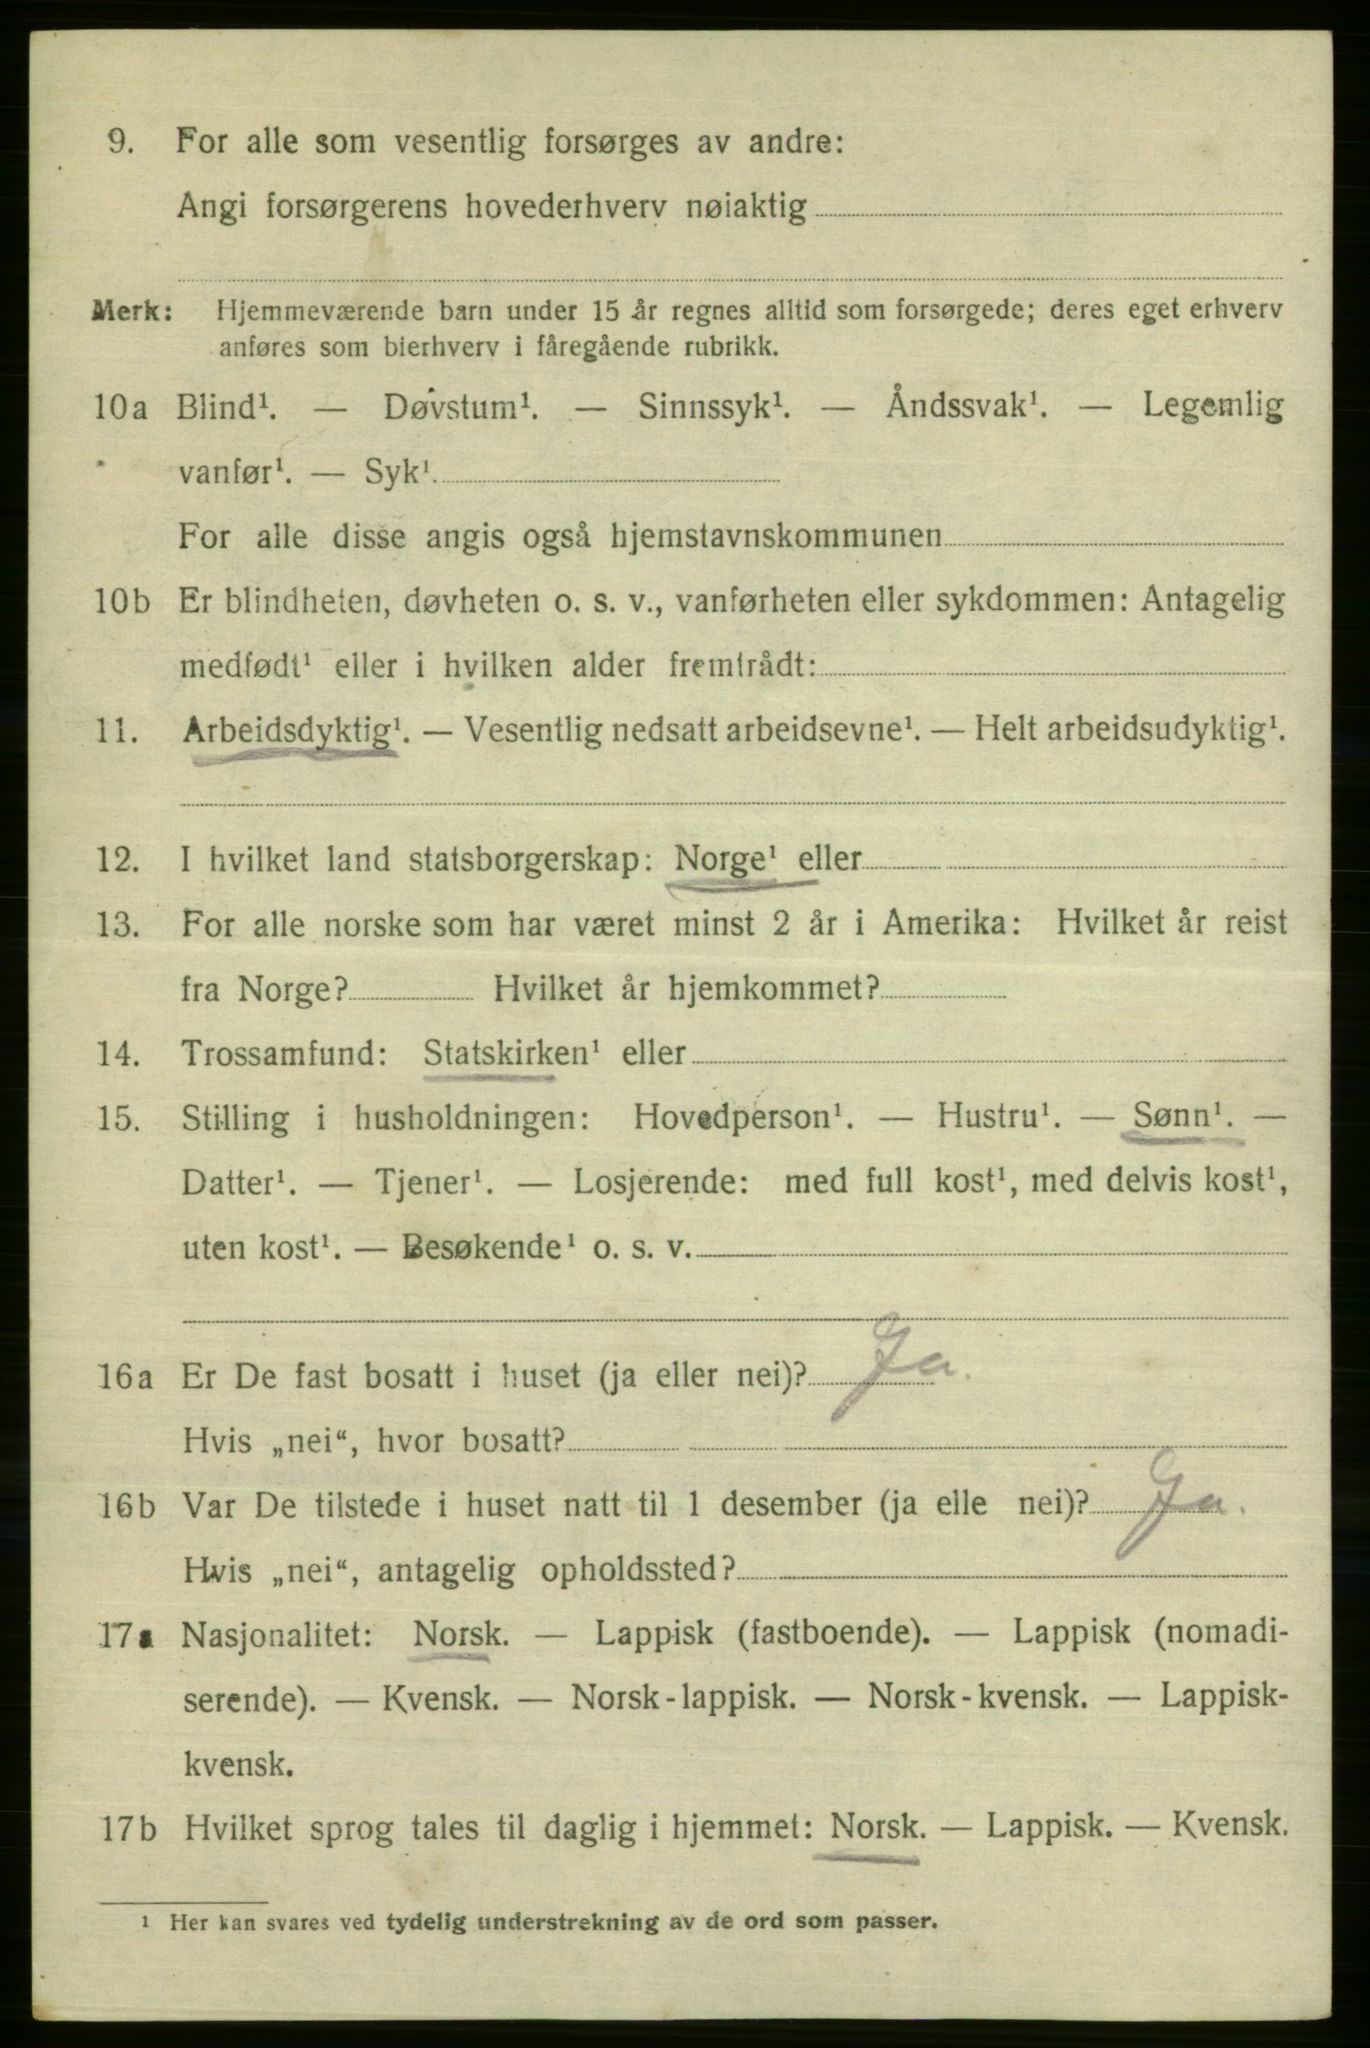 9. For alle som vesentlig forsørges av andre:
Angi forsørgerens hovederhverv nøiaktig
Merk: Hjemmeværende barn under 15 år regnes alltid som forsørgede; deres eget erhverv
anføres som bierhverv i fåregående rubrikk.
10a Blind¹. — Døvstum¹. — Sinnssyk¹. — Åndssvak¹. — Legemlig
vanfør¹. — Syk¹.
For alle disse angis også hjemstavnskommunen
10b Er blindheten, døvheten o. s. v., vanførheten eller sykdommen: Antagelig
medfødt¹ eller i hvilken alder fremtrådt:
11. Arbeidsdyktig¹. — Vesentlig nedsatt arbeidsevne¹. — Helt arbeidsudyktig¹.
12. I hvilket land statsborgerskap: Norge¹ eller
13. For alle norske som har været minst 2 år i Amerika: Hvilket år reist
fra Norge? Hvilket år hjemkommet?
14. Trossamfund: Statskirken¹ eller
15. Stilling i husholdningen: Hovedperson¹. — Hustru¹. — Sønn¹. —
Datter¹. — Tjener¹. — Losjerende: med full kost¹, med delvis kost¹,
uten kost¹. — Besøkende¹ o. s. v.
16a Er De fast bosatt i huset (ja eller nei)? Ja.
Hvis „nei“, hvor bosatt?
16b Var De tilstede i huset natt til 1 desember (ja elle nei)? Ja.
Hvis „nei“, antagelig opholdssted?
17a Nasjonalitet: Norsk. — Lappisk (fastboende). — Lappisk (nomadi-
serende). — Kvensk. — Norsk-lappisk. — Norsk-kvensk. — Lappisk-
kvensk.
17b Hvilket sprog tales til daglig i hjemmet: Norsk. — Lappisk. — Kvensk.
¹ Her kan svares ved tydelig understrekning av de ord som passer.